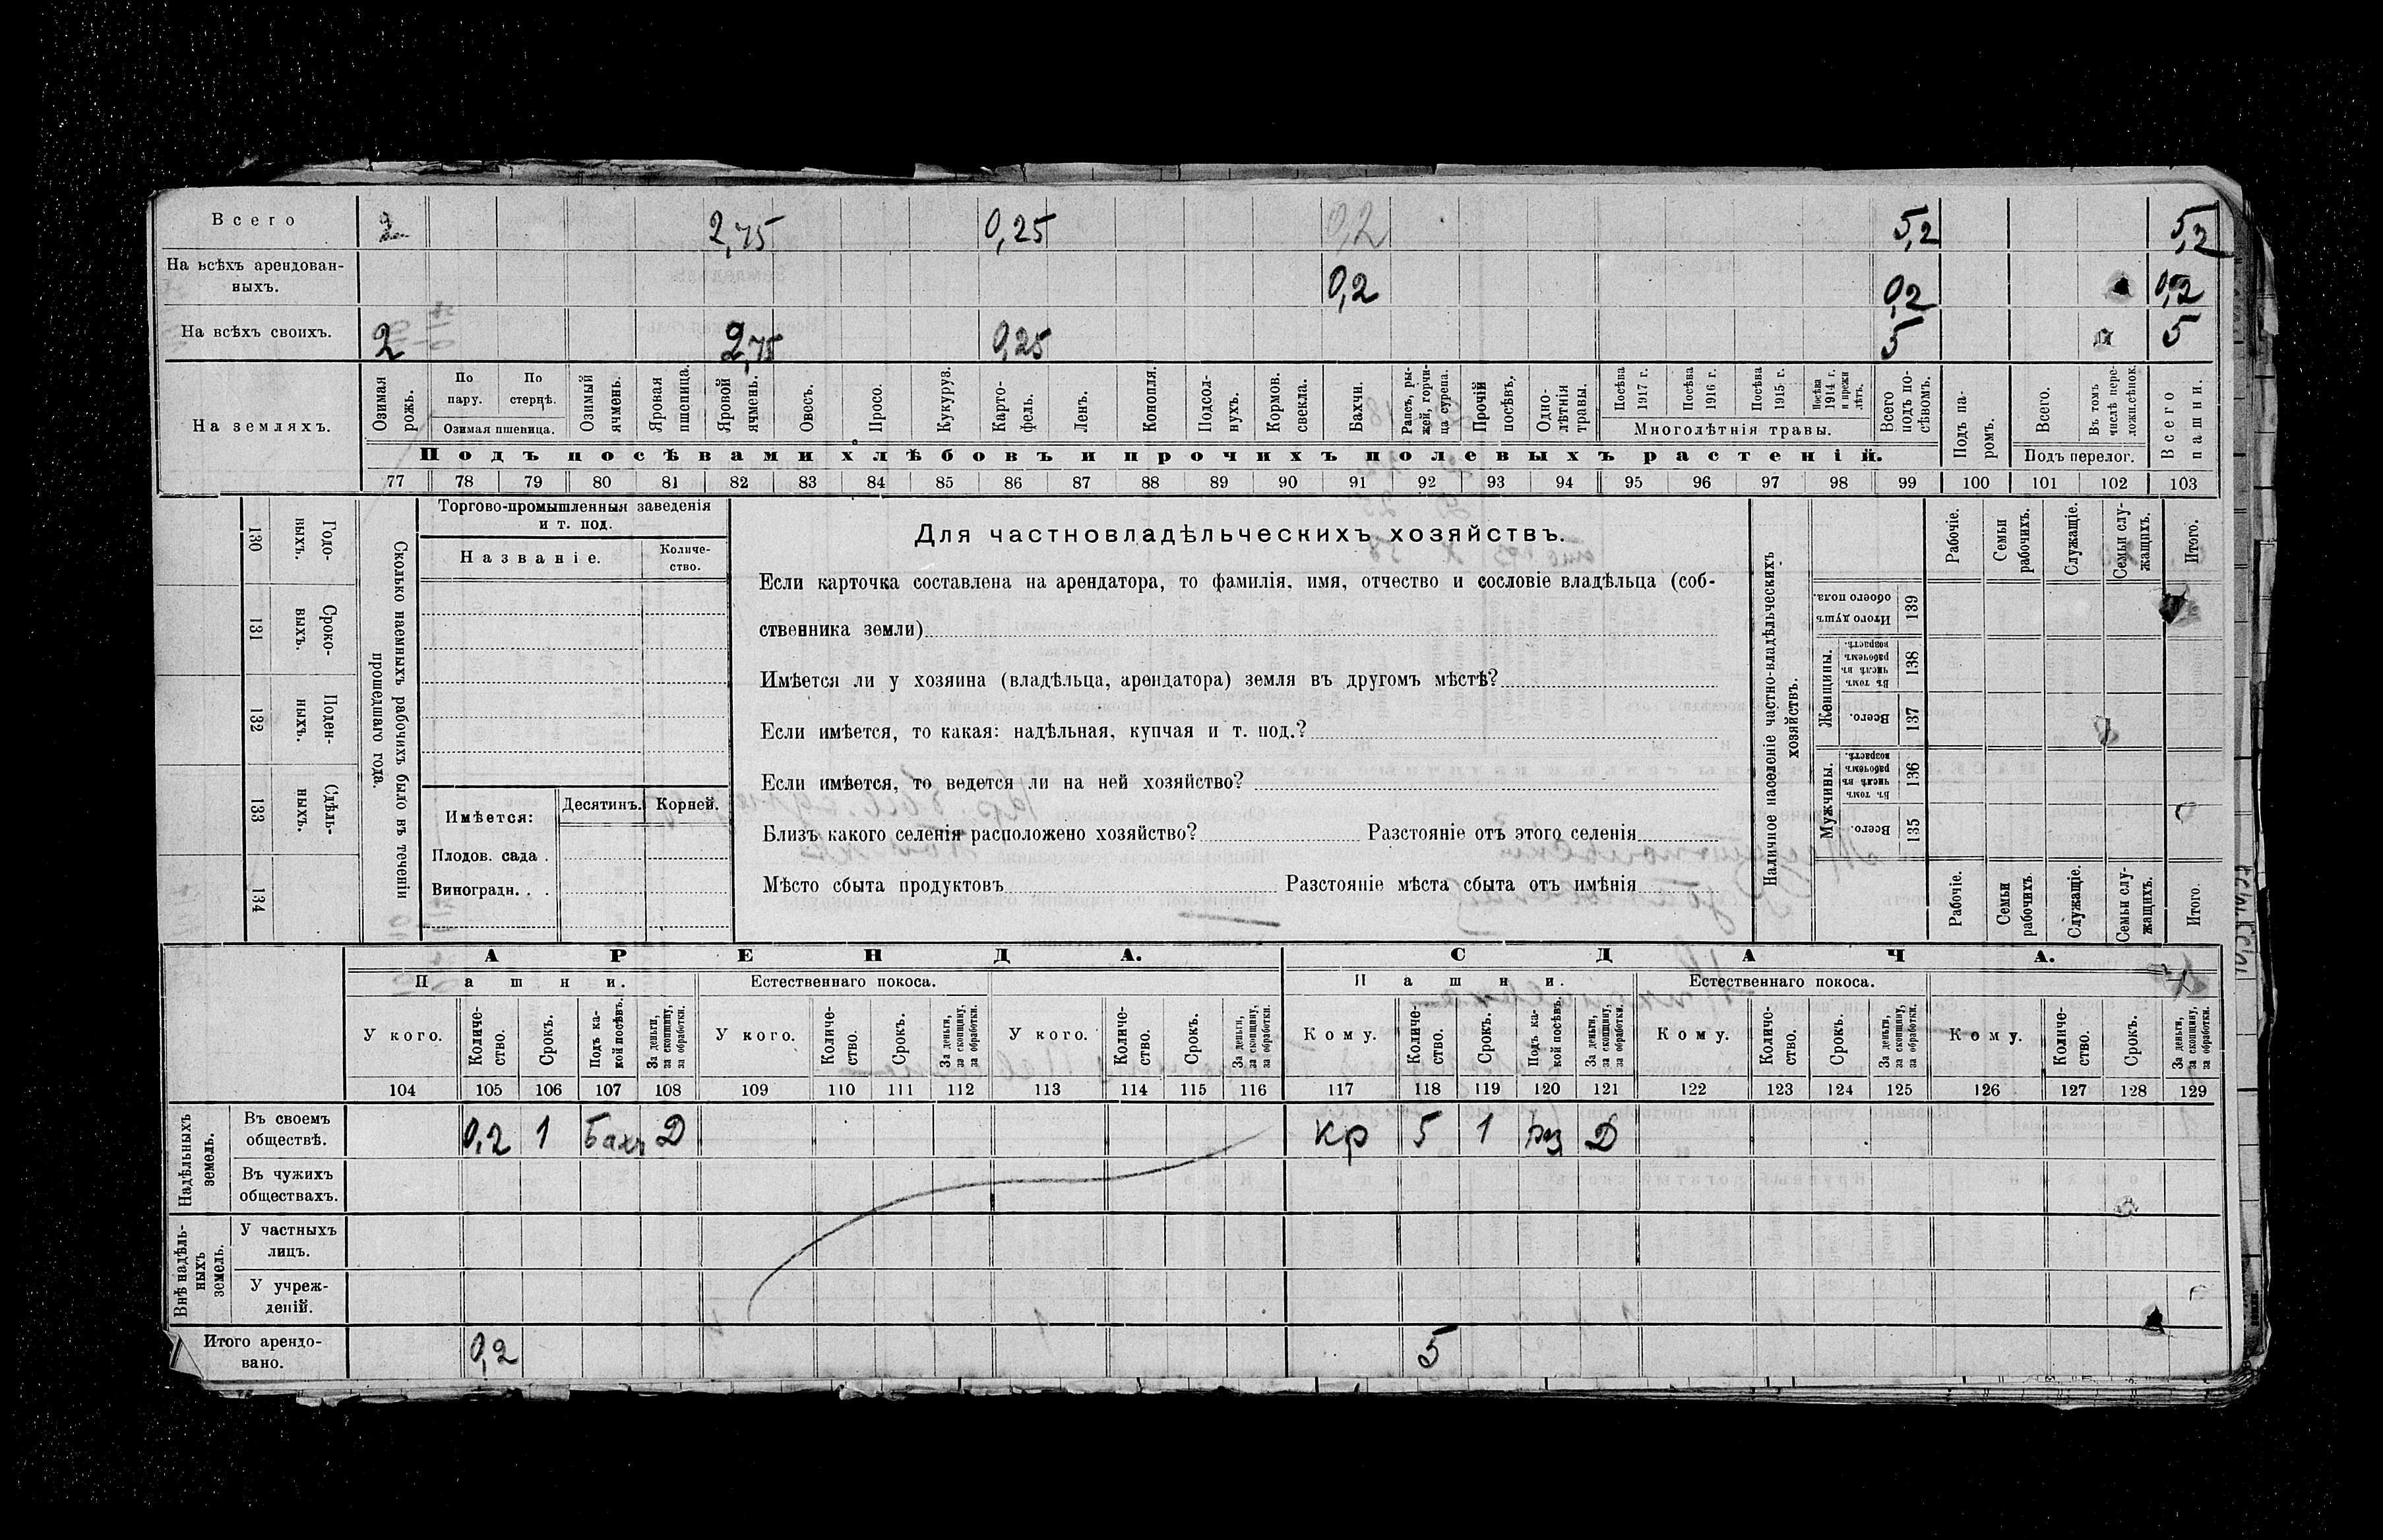 Всего 2 2,75 0,25 0,2 5,2 5,2
На всѣхъ арендован-
ныхъ. 0,2 0,2 0,2
На всѣхъ своихъ. 2 2,75 0,25 5 5
На земляхъ.
Озимая рожь.
По пару.
По стернѣ.
Озимая пшеница.
Озимый ячмень.
Яровая пшеница.
Яровой ячмень.
Овесъ.
Просо.
Кукуруз.
Карто-
фель.
Ленъ.
Конопля.
Подсол-
нухъ.
Кормов.
свекла.
Бахчи.
Рапсъ, ры-
жей, горчи-
ца сурепа.
Прочій
посѣвъ.
Одно-
лѣтнія
травы.
Посѣва
1917 г.
Посѣва
1916 г.
Посѣва
1915 г.
Посѣва
1914 г.
и прежн
лѣтъ.
Многолѣтнія травы.
Всего
подъ по-
сѣвомъ.
Подъ па-
ромъ.
Всего.
Въ томъ
числѣ пере-
ложн.сѣнок.
Подъ перелог.
Всего
пашни.
Подъ посѣвами хлѣбовъ и прочихъ полевыхъ растеній.
77 78 79 80 81 82 83 84 85 86 87 88 89 90 91 92 93 94 95 96 97 98 99 100 101 102 103
130 Годо-
выхъ.
131 Сроко-
выхъ.
132 Поден-
ныхъ.
133 Сдѣль-
ныхъ.
134
Сколько наемныхъ рабочихъ было въ теченіи
прошедшаго года.
Торгово-промышленныя заведенія
и т. под.
Названіе.
Количе-
ство.
Имѣется: Десятинъ. Корней.
Плодов. сада .
Виноградн. . .
Для частновладѣльческихъ хозяйствъ.
Если карточка составлена на арендатора, то фамилія, имя, отчество и сословіе владѣльца (соб-
ственника земли)
Имѣется ли у хозяина (владѣльца, арендатора) земля въ другомъ мѣстѣ?
Если имѣется, то какая: надѣльная, купчая и т. под.?
Если имѣется, то ведется ли на ней хозяйство?
Близъ какого селенія расположено хозяйство? Разстояніе отъ этого селенія
Мѣсто сбыта продуктовъ Разстояніе мѣста сбыта отъ имѣнія
Наличное населеніе частно-владѣльческихъ
хозяйствъ.
Рабочіе.
Семьи
рабочихъ.
Служащіе.
Семьи слу-
жащихъ.
Итого.
Итого душъ
обоего пола.
139
Женщины.
Въ томъ
числѣ въ
рабочемъ
возрастѣ.
138
Всего.
137
Мужчины.
Въ томъ
числѣ въ
рабочемъ
возрастѣ.
136
Всего.
135
Рабочіе.
Семьи
рабочихъ.
Служащіе.
Семьи слу-
жащихъ.
Итого.
АРЕНДА.
СДАЧА.
Пашни.
Естественнаго покоса.
Пашни.
Естественнаго покоса.
У кого.
Количе-
ство.
Срокъ.
Подъ ка-
кой посѣвъ.
За деньги,
за скопщину,
за обработки.
У кого.
Количе-
ство.
Срокъ.
За деньги,
за скопщину,
за обработки.
У кого.
Количе-
ство.
Срокъ.
За деньги,
за скопщину,
за обработки.
Кому.
Количе-
ство.
Срокъ.
Подъ ка-
кой посѣвъ.
За деньги,
за скопщину,
за обработки.
Кому.
Количе-
ство.
Срокъ.
За деньги,
за скопщину,
за обработки.
Кому.
Количе-
ство.
Срокъ.
За деньги,
за скопщину,
за обработки.
104 105 106 107 108 109 110 111 112 113 114 115 116 117 118 119 120 121 122 123 124 125 126 127 128 129
Надѣльныхъ
земель.
Въ своемъ
обществѣ. 0,2 1 Бахч Д кр 5 1 Д
Въ чужихъ
обществахъ.
Внѣ надѣль-
ныхъ
земель.
У частныхъ
лицъ.
У учреж-
деній.
Итого арендо-
вано. 0,2 5